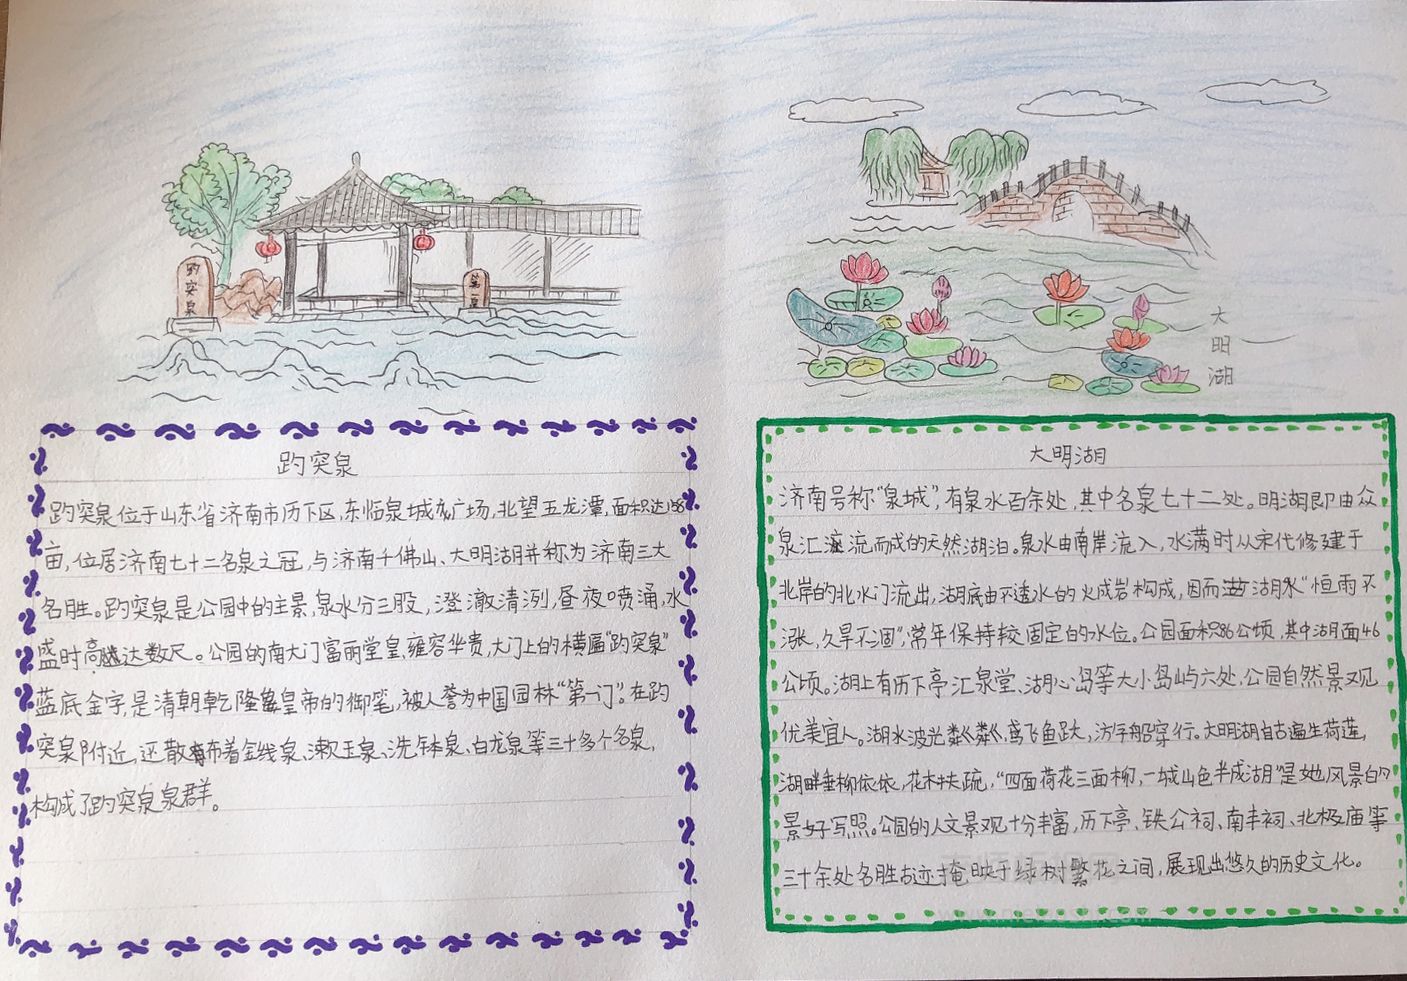 趵突泉
第一泉
大明湖
趵突泉
趵突泉位于山东省济南市历下区,东临泉城广场,北望五龙潭,面积达158
亩,位居济南七十二名泉之冠,与济南千佛山、大明湖并称为济南三大
名胜。趵突泉是公园中的主景,泉水分三股,澄澈清洌,昼夜喷涌,水
盛时高达数尺。公园的南大门富丽堂皇,雍容华贵,大门上的横匾“趵突泉”
蓝底金字,是清朝乾隆皇帝的御笔,被人誉为中国园林“第一门”。在趵
突泉附近,还散布着金线泉、漱玉泉、洗钵泉、白龙泉等三十多个名泉,
构成了趵突泉泉群。
大明湖
济南号称“泉城”,有泉水百余处,其中名泉七十二处。明湖即由众
泉汇流而成的天然湖泊。泉水由南岸流入,水满时从宋代修建于
北岸的北水门流出,湖底由不透水的火成岩构成,因而湖水“恒雨不
涨,久旱不涸”,常年保持较固定的水位。公园面积86公顷,其中湖面46
公顷。湖上有历下亭、汇泉堂、湖心岛等大小岛屿六处,公园自然景观
优美宜人。湖水波光粼粼,鸢飞鱼跃,游船穿行。大明湖自古遍生荷莲,
湖畔垂柳依依,花木扶疏,“四面荷花三面柳,一城山色半成湖”是她风景的
景好写照。公园的人文景观十分丰富,历下亭、铁公祠、南丰祠、北极庙等
三十余处名胜古迹掩映于绿树繁花之间,展现出悠久的历史文化。